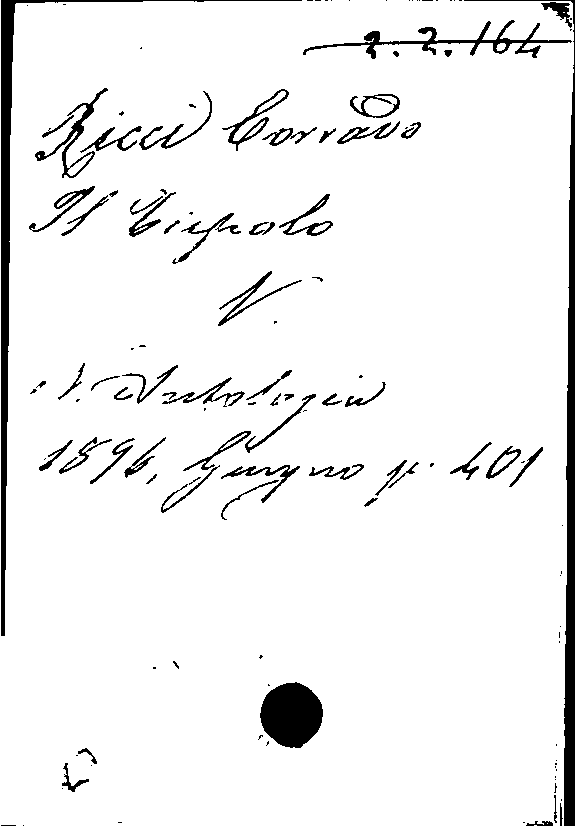 2.2.164
Ricci Corrado
Il Tiepolo
V.
N. Antologia
1896, Giugno p. 401